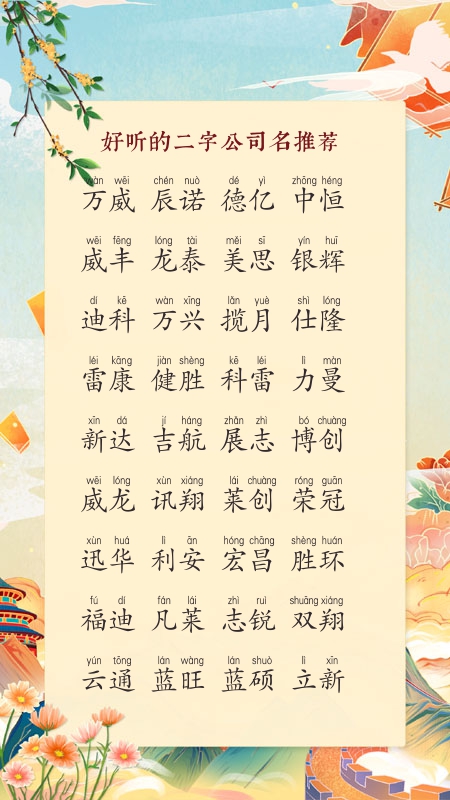 好听的二字公司名推荐
wàn wēi chén nuò dé yì zhōng héng
万威 辰诺 德亿 中恒
wēi fēng lóng tài měi sī yín huī
威丰 龙泰 美思 银辉
dí kē wàn xīng lǎn yuè shì lóng
迪科 万兴 揽月 仕隆
léi kāng jiàn shèng kē léi lì màn
雷康 健胜 科雷 力曼
xīn dá jí háng zhǎn zhì bó chuàng
新达 吉航 展志 博创
wēi lóng xùn xiáng lái chuàng róng guān
威龙 讯翔 莱创 荣冠
xùn huá lì ān hóng chāng shèng huán
迅华 利安 宏昌 胜环
fú dí fán lái zhì ruì shuāng xiáng
福迪 凡莱 志锐 双翔
yún tōng lán wàng lán shuò lì xīn
云通 蓝旺 蓝硕 立新